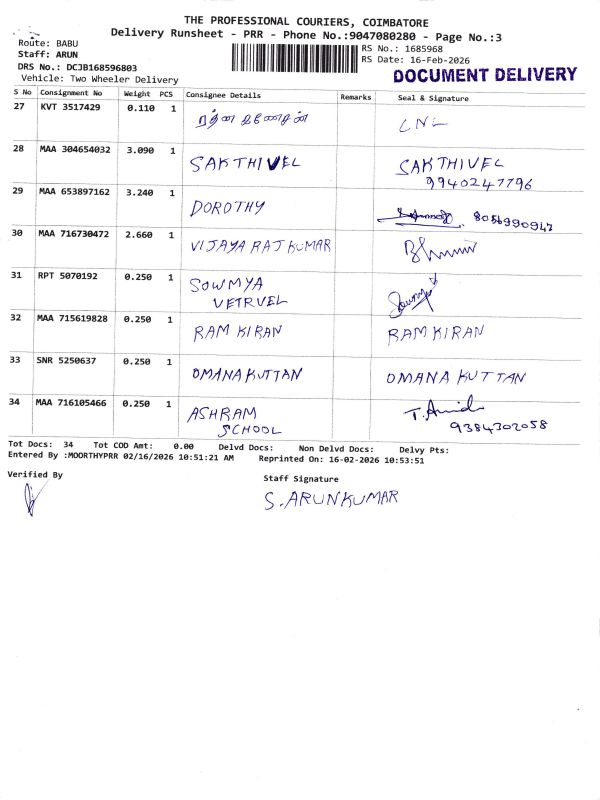 THE PROFESSIONAL COURIERS, COIMBATORE
Delivery Runsheet - PRR - Phone No.:9047080280 - Page No.:3
Route: BABU
Staff: ARUN
DRS No.: DCJB168596803
Vehicle: Two Wheeler Delivery
RS No.: 1685968
RS Date: 16-Feb-2026
DOCUMENT DELIVERY
S No Consignment No Weight PCS Consignee Details Remarks Seal & Signature
27 KVT 3517429 0.110 1
28 MAA 304654032 3.090 1 SAKTHIVEL SAKTHIVEL
9940247796
29 MAA 653897162 3.240 1 DOROTHY 8056990947
30 MAA 716730472 2.660 1 VIJAYA RAJ KUMAR
31 RPT 5070192 0.250 1 SOWMYA
VETRVEL
32 MAA 715619828 0.250 1 RAM KIRAN RAM KIRAN
33 SNR 5250637 0.250 1 OMANA KUTTAN OMANA KUTTAN
34 MAA 716105466 0.250 1 ASHRAM
SCHOOL
9384302058
Tot Docs: 34 Tot COD Amt: 0.00 Delvd Docs: Non Delvd Docs: Delvy Pts:
Entered By :MOORTHYPRR 02/16/2026 10:51:21 AM Reprinted On: 16-02-2026 10:53:51
Verified By
Staff Signature
S. ARUNKUMAR